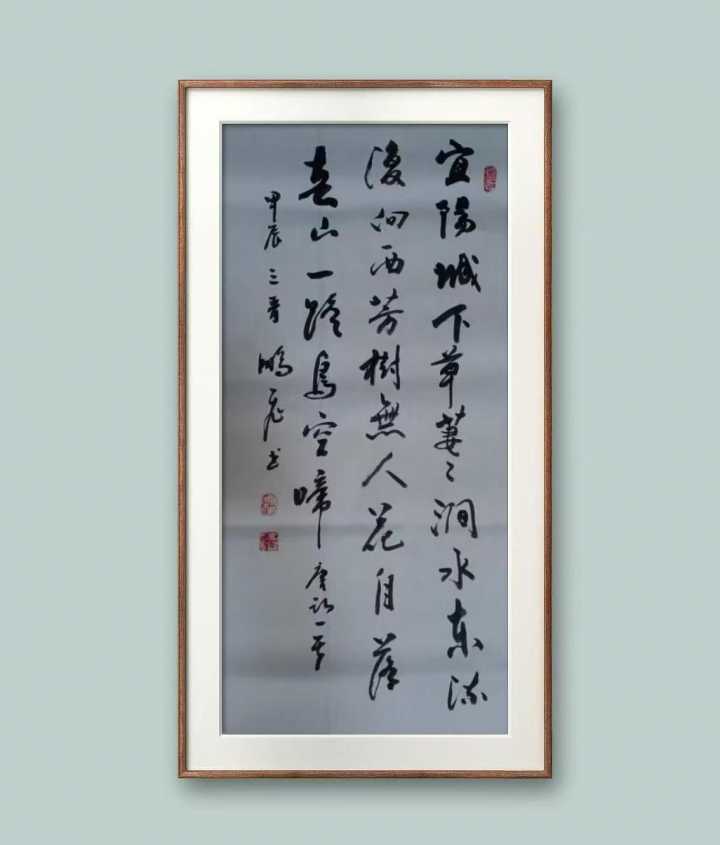 宜陽城下草萋〻澗水东流
復向西芳樹無人花自落
春山一路鳥空啼 唐詩一首
甲辰 三晋 鵬飛书